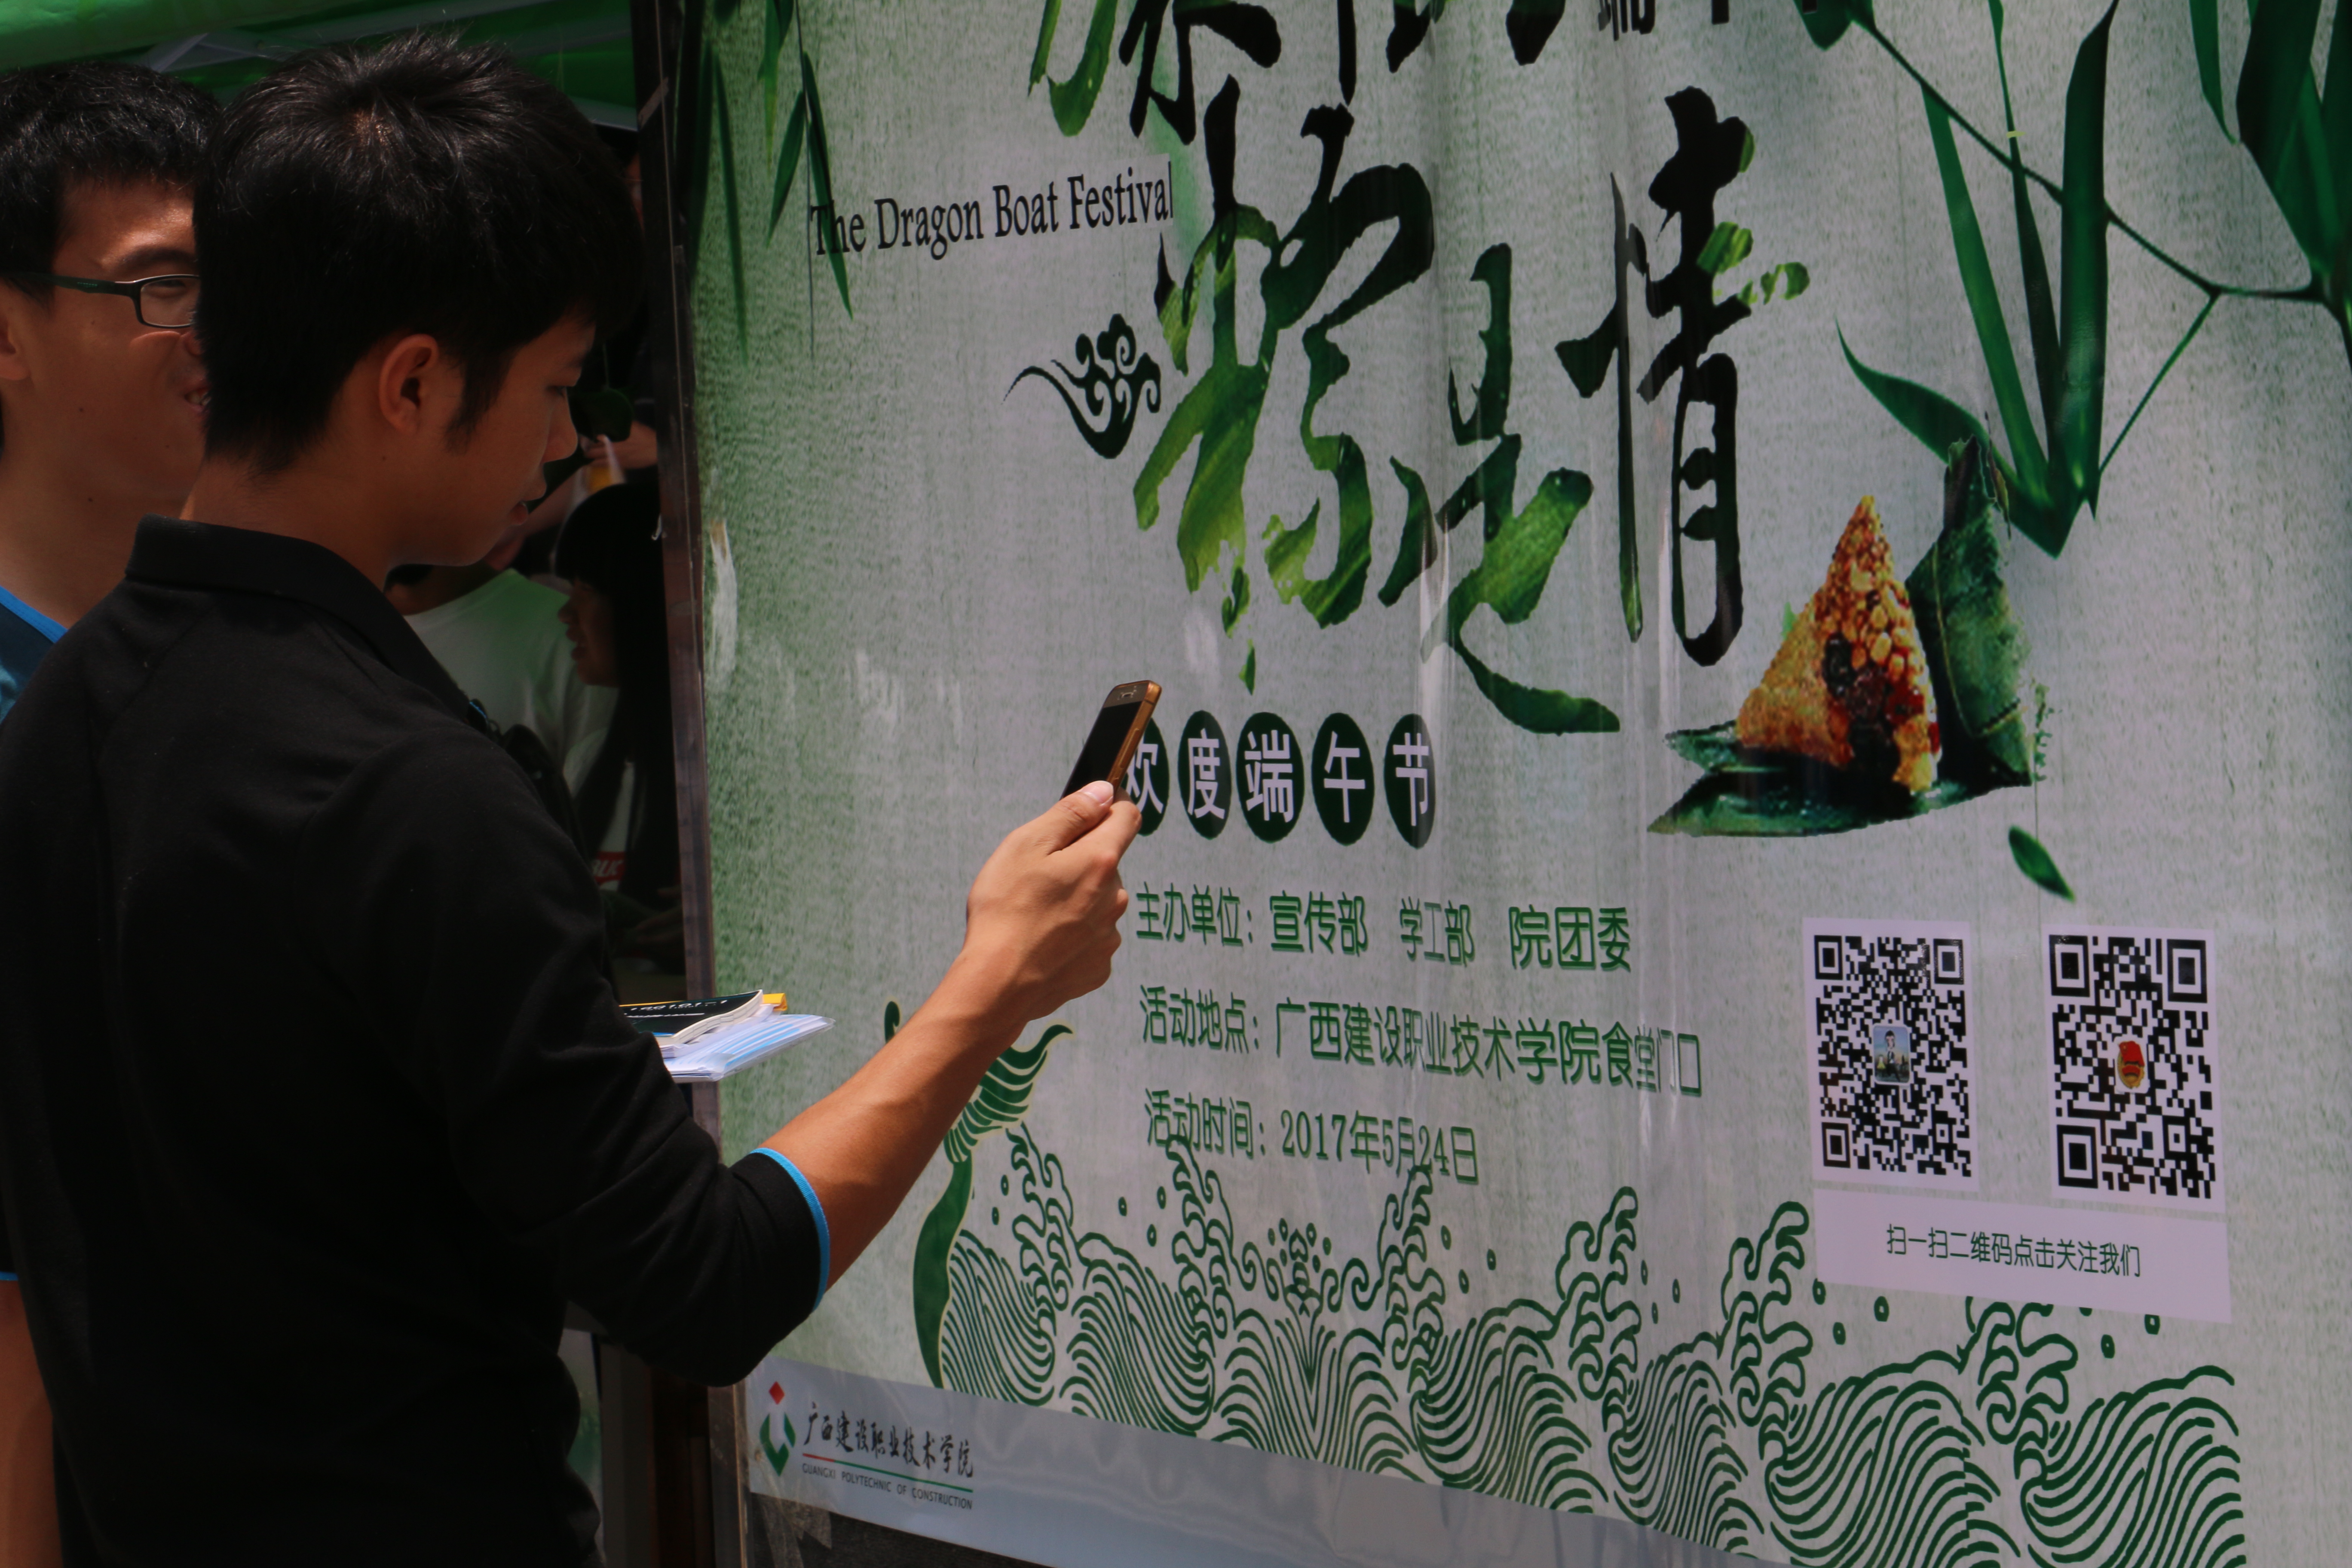 The Dragon Boat Festival
粽是情
欢度端午节
主办单位：宣传部 学工部 院团委
活动地点：广西建设职业技术学院食堂门口
活动时间：2017年5月24日
扫一扫二维码点击关注我们
广西建设职业技术学院
GUANGXI POLYTECHNIC OF CONSTRUCTION